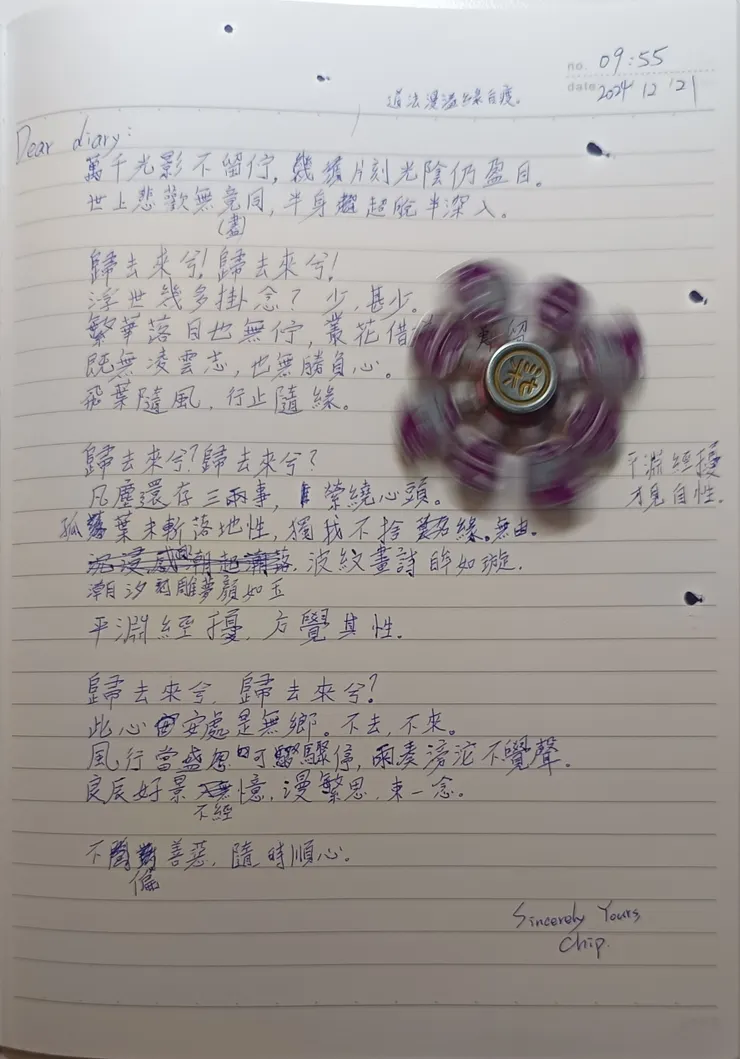 no. 09:55
date 2024 12 21
道法漫溢緣自癡。
Dear diary:
萬千光影不留佇，幾縷片刻光陰仍盈目。
世上悲歡無竟同，半身超脫半深入。
(盡)
歸去來兮！歸去來兮！
浮世幾多掛念？少，甚少。
繁華落目也無佇，叢花借 難留
既無凌雲志，也無勝負心。
飛葉隨風，行止隨緣。
歸去來兮？歸去來兮？
平淵經擾
才見自性。
凡塵還存三兩事，縈繞心頭。
孤葉未斬落地性，獨我不捨 緣。無由。
沉浸感潮起潮落，波紋畫詩眸如璇。
潮汐 雕夢顏如玉
平淵經擾，方覺其性。
歸去來兮，歸去來兮？
此心安處是無鄉。不去，不來。
風行當盛忽可驟停，雨奏滂沱不覺聲。
良辰好景 憶，漫繁思，束一念。
不經
不 善惡，隨時順心。
偏
Sincerely Yours
Chip.